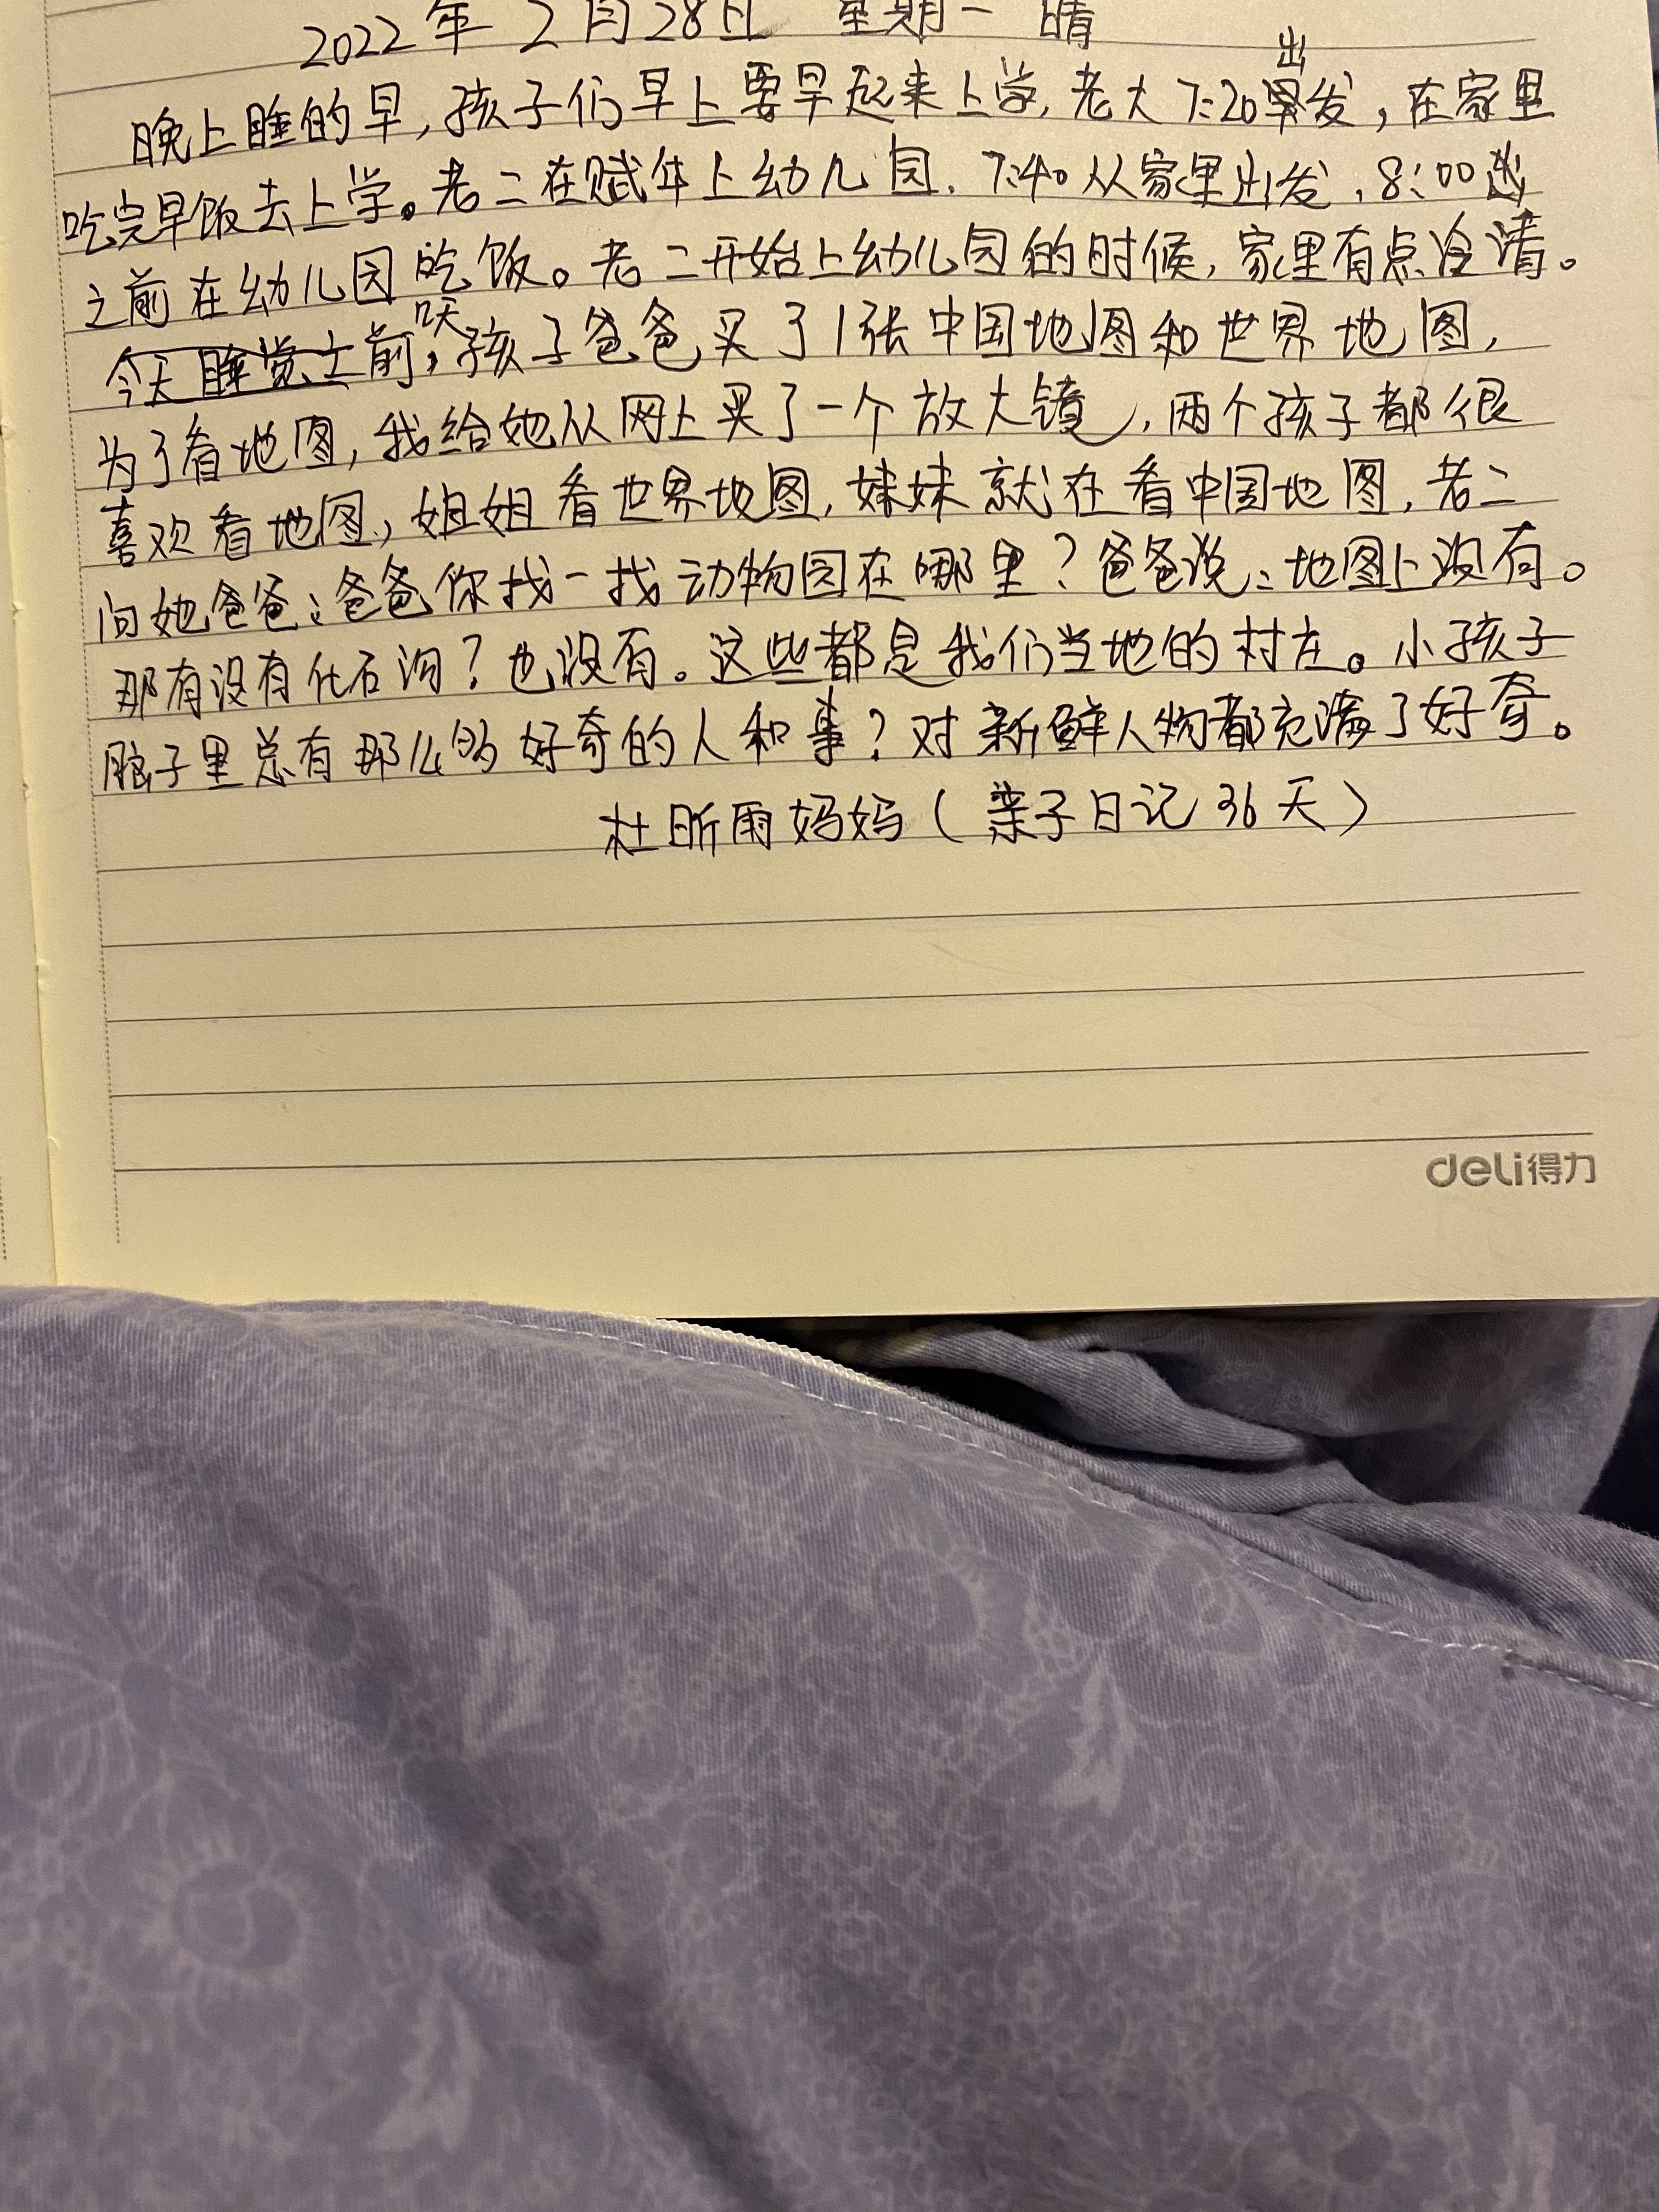 2022年 2月28日 星期一 晴
晚上睡的早,孩子们早上要早起来上学,老大7:20出发,在家里
吃完早饭去上学。老二在赋年上幼儿园.7:40从家里出发,8:00
之前在幼儿园吃饭。老二开始上幼儿园的时候,家里有点冷清。
今天睡觉之前,昨天孩子爸爸买了1张中国地图和世界地图,
为了看地图,我给她从网上买了一个放大镜,两个孩子都很
喜欢看地图,姐姐看世界地图,妹妹就在看中国地图,老二
问她爸爸:爸爸你找一找动物园在哪里?爸爸说:地图上没有。
那有没有化石沟?也没有。这些都是我们当地的村庄。小孩子
脑子里总有那么多好奇的人和事?对新鲜人物都充满了好奇。
杜昕雨妈妈(亲子日记36天)
deli得力